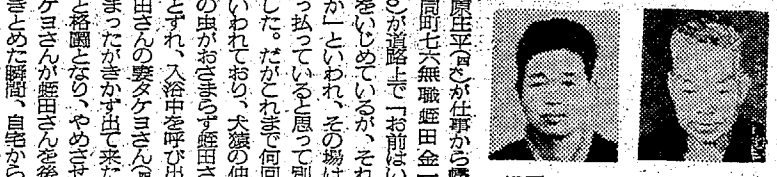 原庄平（四
）が仕事から帰
同町七六無職蛭田金一
）が道路上で「お前はい
をいじめているが、それ
か」といわれ、その場は
っ払っていると思って別
した。だがこれまで何回
いわれており、犬猿の仲
の虫がおさまらず蛭田さ
とずれ、入浴中を呼び出
田さんの妻タケヨさん（
まったがきかず出て来た
と格闘となり、やめさせ
ケヨさんが蛭田さんを後
きとめた瞬間、自宅から